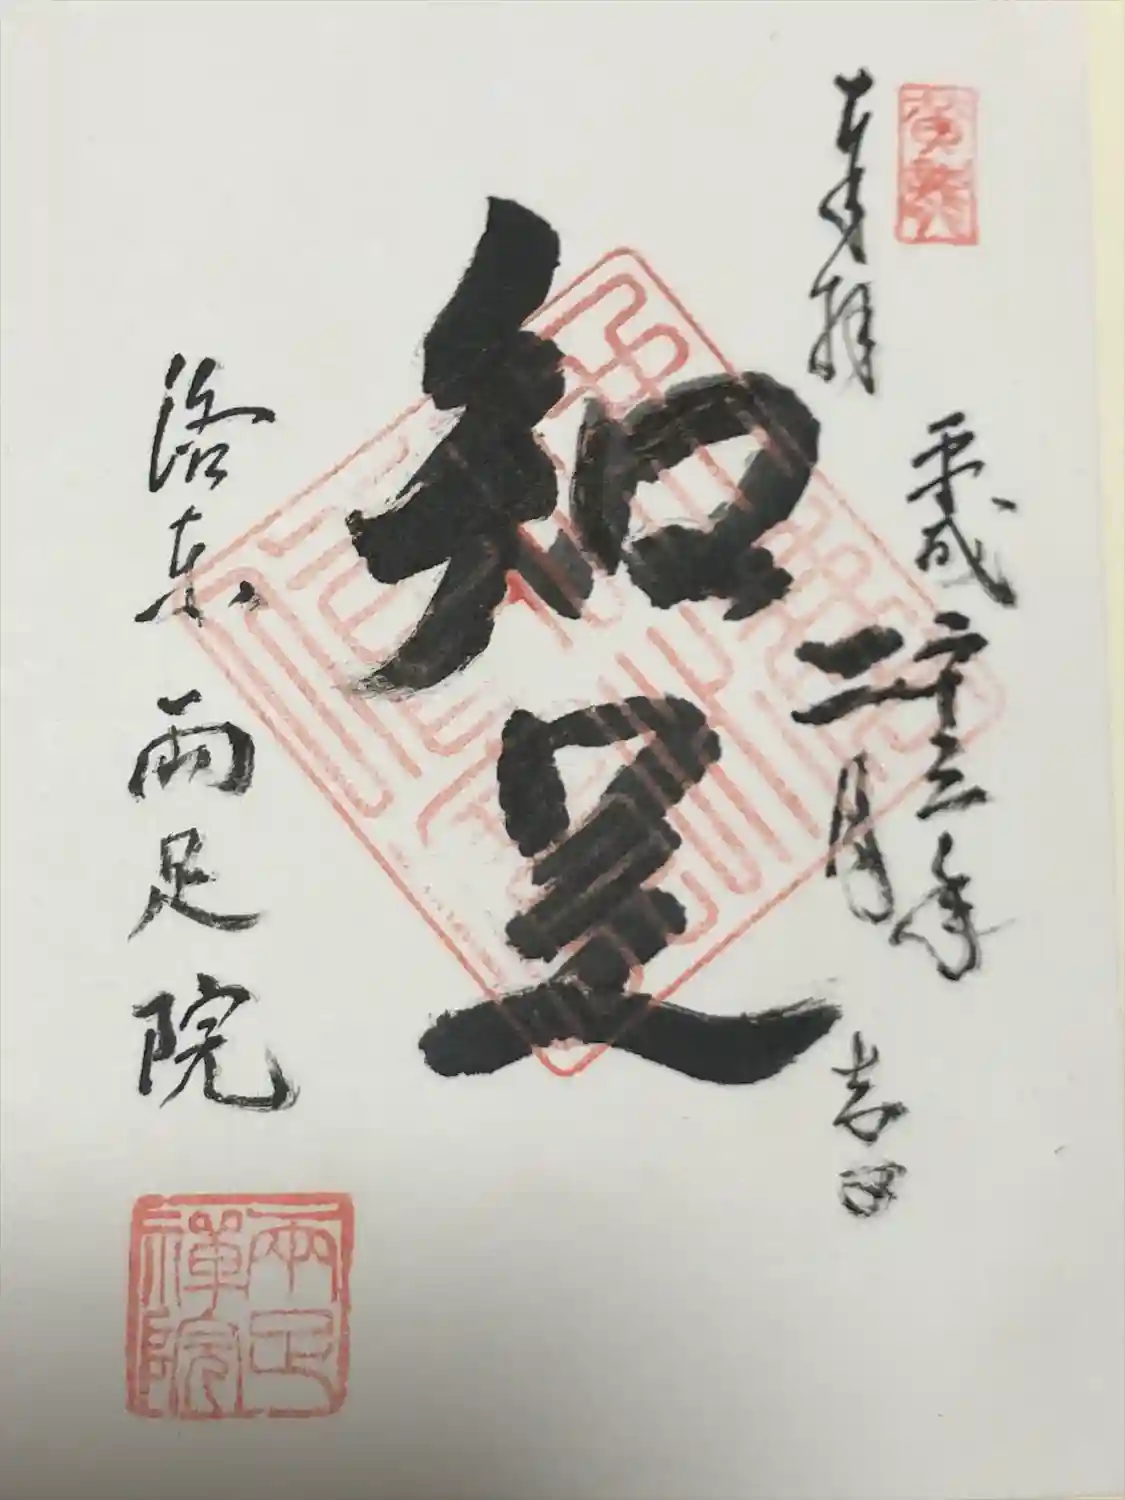 奉拝
平成二十三年
二月吉日
知足
洛東 両足院
両足禅院